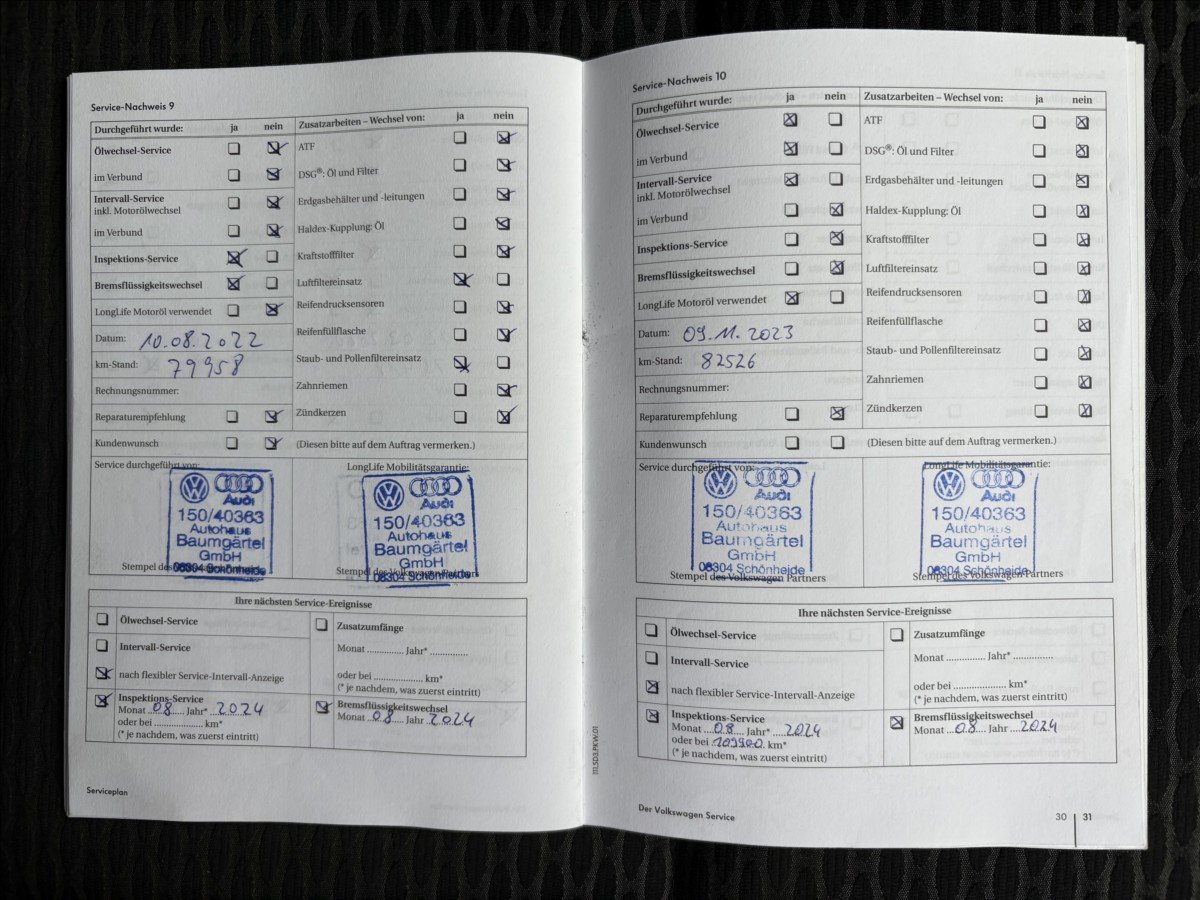 Service-Nachweis 9
Durchgeführt wurde: ja nein
Ölwechsel-Service
im Verbund
Intervall-Service
inkl. Motorölwechsel
im Verbund
Inspektions-Service
Bremsflüssigkeitswechsel
LongLife Motoröl verwendet
Datum: 10.08.2022
km-Stand: 79958
Rechnungsnummer:
Reparaturempfehlung
Kundenwunsch
Zusatzarbeiten – Wechsel von: ja nein
ATF
DSG®: Öl und Filter
Erdgasbehälter und -leitungen
Haldex-Kupplung: Öl
Kraftstofffilter
Luftfiltereinsatz
Reifendrucksensoren
Reifenfüllflasche
Staub- und Pollenfiltereinsatz
Zahnriemen
Zündkerzen
(Diesen bitte auf dem Auftrag vermerken.)
Service durchgeführt von:
VW Audi
150/40363
Autohaus
Baumgärtel
GmbH
08304 Schönheide
Stempel des Volkswagen Partners
LongLife Mobilitätsgarantie:
VW Audi
150/40363
Autohaus
Baumgärtel
GmbH
08304 Schönheide
Stempel des Volkswagen Partners
Ihre nächsten Service-Ereignisse
Ölwechsel-Service
Intervall-Service
nach flexibler Service-Intervall-Anzeige
Zusatzumfänge
Monat ............... Jahr* ...............
oder bei ..................... km*
(* je nachdem, was zuerst eintritt)
Inspektions-Service
Monat 08 Jahr* 2024
oder bei ..................... km*
(* je nachdem, was zuerst eintritt)
Bremsflüssigkeitswechsel
Monat 08 Jahr 2024
Serviceplan
111.5D3.PKW.01
Service-Nachweis 10
Durchgeführt wurde: ja nein
Ölwechsel-Service
im Verbund
Intervall-Service
inkl. Motorölwechsel
im Verbund
Inspektions-Service
Bremsflüssigkeitswechsel
LongLife Motoröl verwendet
Datum: 09.11.2023
km-Stand: 82526
Rechnungsnummer:
Reparaturempfehlung
Kundenwunsch
Zusatzarbeiten – Wechsel von: ja nein
ATF
DSG®: Öl und Filter
Erdgasbehälter und -leitungen
Haldex-Kupplung: Öl
Kraftstofffilter
Luftfiltereinsatz
Reifendrucksensoren
Reifenfüllflasche
Staub- und Pollenfiltereinsatz
Zahnriemen
Zündkerzen
(Diesen bitte auf dem Auftrag vermerken.)
Service durchgeführt von:
VW Audi
150/40363
Autohaus
Baumgärtel
GmbH
08304 Schönheide
Stempel des Volkswagen Partners
LongLife Mobilitätsgarantie:
VW Audi
150/40363
Autohaus
Baumgärtel
GmbH
08304 Schönheide
Stempel des Volkswagen Partners
Ihre nächsten Service-Ereignisse
Ölwechsel-Service
Intervall-Service
nach flexibler Service-Intervall-Anzeige
Zusatzumfänge
Monat ............... Jahr* ...............
oder bei ..................... km*
(* je nachdem, was zuerst eintritt)
Inspektions-Service
Monat 08 Jahr* 2024
oder bei km*
(* je nachdem, was zuerst eintritt)
Bremsflüssigkeitswechsel
Monat 08 Jahr 2024
Der Volkswagen Service
30 31